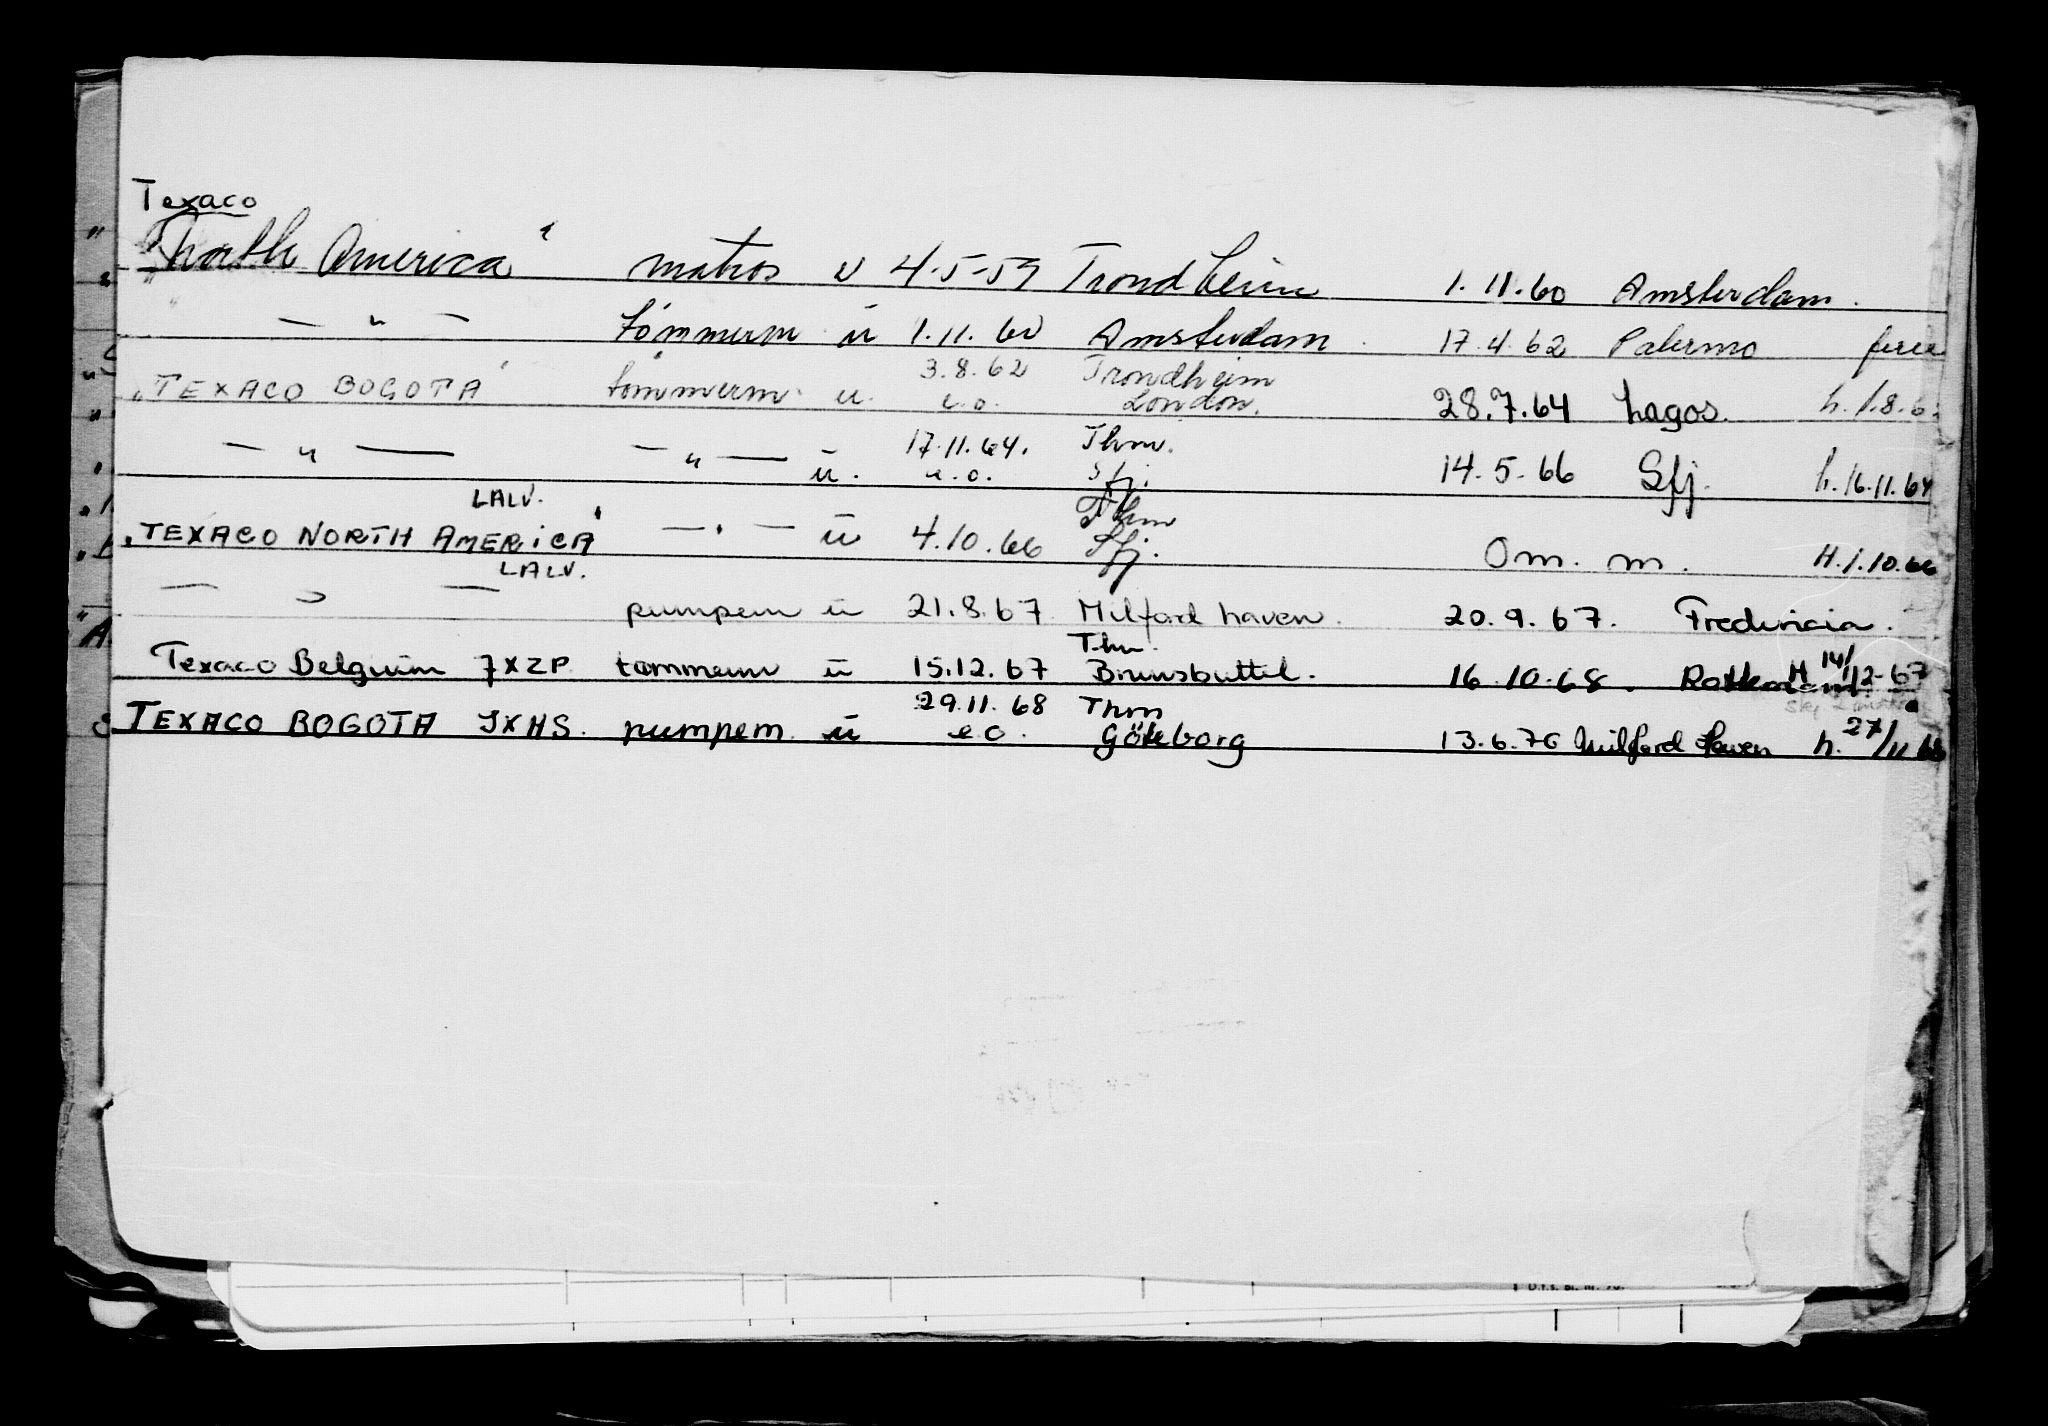 Texaco
"North America" matros u 4-5-59 Trondheim 1.11.60 Amsterdam.
— " — tømmerm ü 1.11.60 Amsterdam. 17.4.62 Palermo ferie
3.8.62 Trondheim
"TEXACO BOGOTA" tømmerm. u. e.o. London. 28.7.64 Lagos. h. 1.8.62
17.11.64. Thm.
— " — — " — u. e.o. Sfj. 14.5.66 Sfj. h. 16.11.64
LALV. Thm
"TEXACO NORTH AMERICA" — " — ü 4.10.66 Sfj. Om. m. H.1.10.66
LALV.
— " — pumpem ü 21.8.67 Milford haven. 20.9.67. Fredericia.
Thm.
Texaco Belgium JXZP tømmerm ü 15.12.67 Brunsbuttel. 16.10.68. Rotterdam H 14/12-67
29.11.68 Thm
TEXACO BOGOTA JXHS. pumpem ü e.o. Göteborg 13.6.70 Milford Haven h. 27/11 68